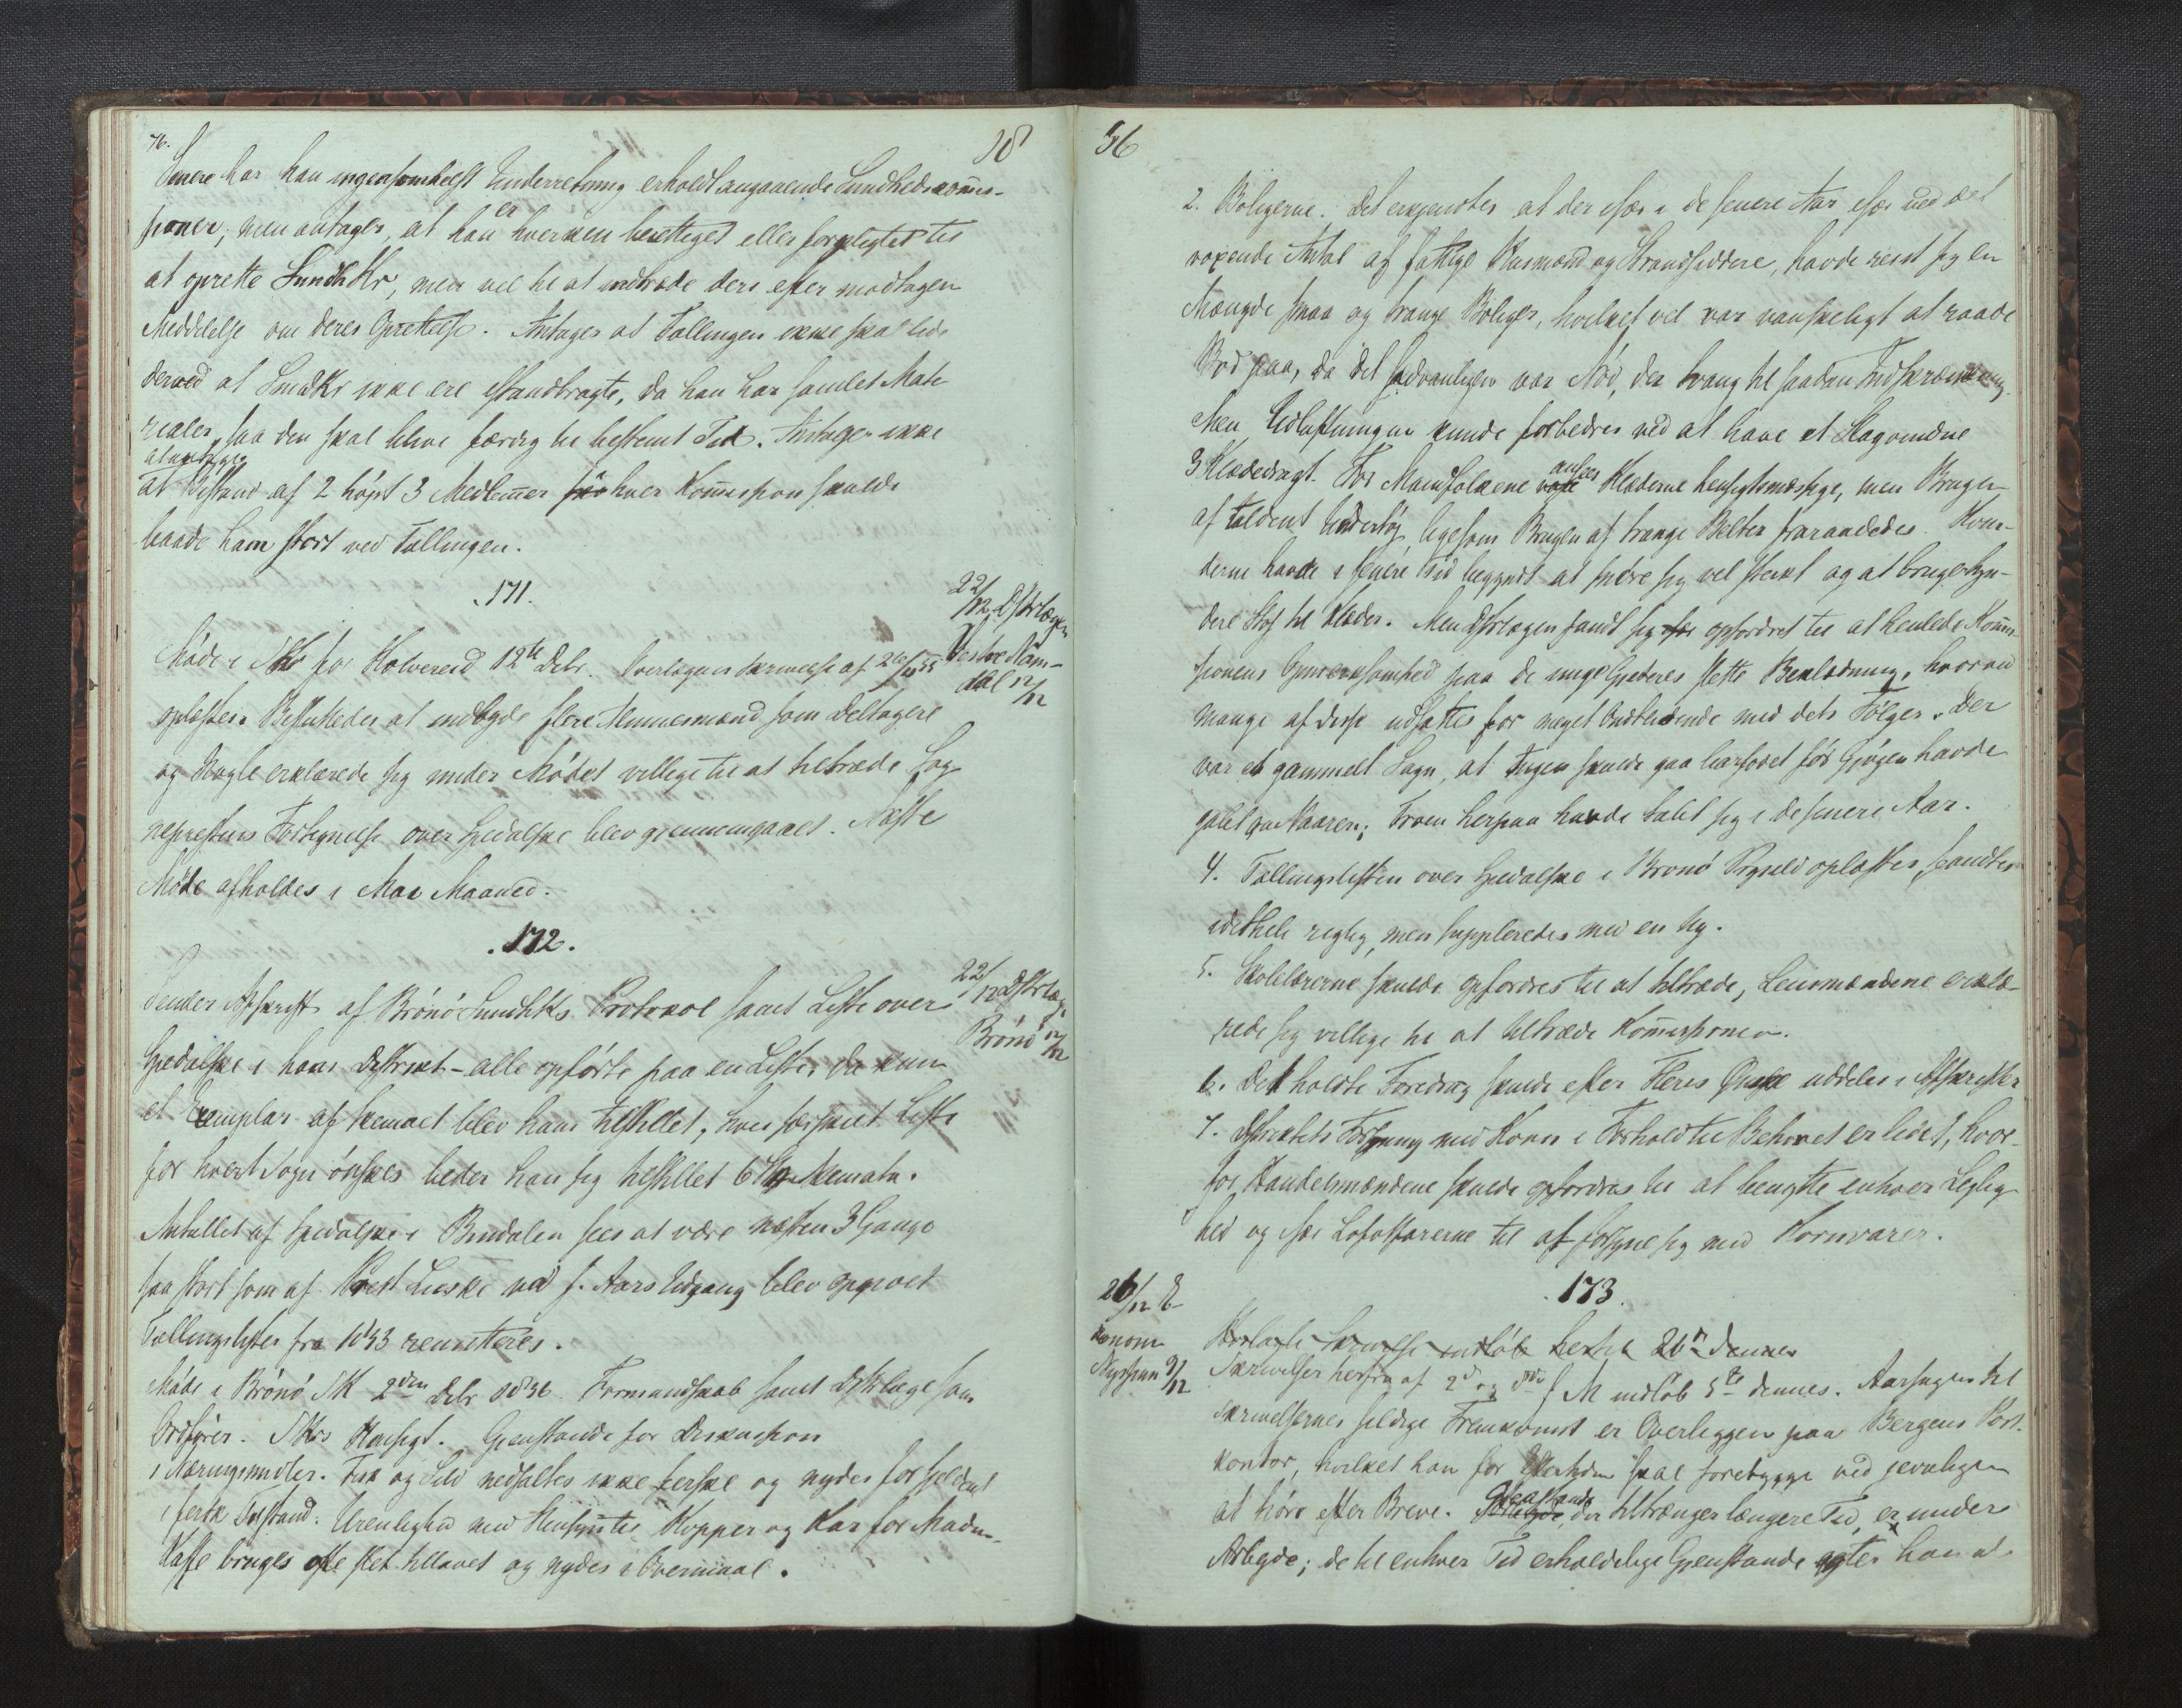 76.
18
Senere har han ingensomhelst Underretning erholdt angaaende Sundhedskom̅is-
sioner; men antager, at han er hverken berettiget eller forpligtet til
at oprette SundhKr, men vel til at indtræde deri efter modtagen
Meddelelse om deres Oprettelse. Antager at Tællingen ikke skal lide
derved at SundKr ikke ere istandbragte, da han har samlet Mate
rialer, saa den skal blive færdig til bestemt Tid. Antager ikke
at Bistand af 2 høist 3 Medlem̅er hver Kom̅ission skulde
baade ham stort ved Tællingen.
171.
22/12 Dstrlægen
Vestre Nam-
dal 12/12
Møde i SKr for Kolvereid 12te Debr. Overlægens Skrivelse af
oplæstes. Besluttedes at indbyde flere Almuesmænd som Deltagere
og Nogle erklærede sig under Mødet villige til at tiltræde. Sog
nepræstens Fortegnelse over Spedalske blev gjennemgaaet. Næste
Møde afholdes i Mai Maaned.
.172.
22/12 Dstrlæg.
Brønø 12/12
Sender Afskrift af Brønø SundhKs Protokol samt Liste over
Spedalske i hans Distrikt - alle opførte paa en Liste, da kun
et Exemplar af Skemaet blev ham tilstillet; hvis særskilt Liste
for hvert Sogn ønskes beder han sig tilstillet 6 Skemata.
Antallet af Spedalske i Bindalen sees at være næsten 3 Gange
saa stort som af Prest ved f. Aars Udgang blev opgivet
Tællingslister fra 1853 remitteres.
Møde i Brønø SK 2den Debr 1856. Formandskab samt Dstrlæge som
Ordfører. SKrs Hensigt. Gjenstande for Diskussion
1 Næringsmidler. Fisk og Sild nedsaltes ikke ferske og nydes for sjeldent
i fersk Tilstand. Urenlighed med Hensyn til Kopper og Kar for Maden.
Kaffe bruges ofte slet tillavet og nydes i Overmaal.
56
2. Boligerne. Det erkjendtes at der især i de senere Aar især ved det
voxende Antal af fattige Husmænd og Strandsiddere, havde reist sig en
Mængde smaa og trange Boliger, hvilket vel var vanskeligt at raade
Bod paa, da det sædvanligen var Nød, der tvang til saadan Indskrænkning.
Men Udluftningen kunde forbedres ved at have et Slagvindue
3 Klædedragt. For Mandfolkene ansees Klæderne hensigtsmæssige, men Brugen
af Undertøy, ligesom Brugen af trange Belter fraraadedes. Kvin-
derne havde i senere Tid begyndt at snøre sig vel sterkt og at bruge tyn-
dere Stof til Klæder. Men Dstrlægen fandt sig opfordret til at henlede Kom̅is-
sionens Opmærksomhed paa de unge Gjæteres slette Beklædning, hvorved
mange af disse udsattes for meget Ondtlidende med dets Følger. Der
var et gammelt Sagn, at Ingen skulde gaa barfodet før Gjøgen havde
galet om Vaaren; Troen herpaa havde tabt sig i de senere Aar.
4. Tællingslisten over Spedalske i Brønø Prgjeld oplæstes, fandtes
idethele rigtig, men suppleredes med en Ny.
5. Skolelærerne skulde opfordres til at tiltræde, Lensmændene erklæ-
rede sig villige til at tiltræde Kom̅issionen.
6. Det holdte Foredrag skulde efter Fleres Ønske uddeles i Afskrifter
7. Distriktets Forsyning med Korn i Forhold til Behovet er lidet, hvor-
for Handelsmændene skulde opfordres til at benytte enhver Leylig-
hed og især Lofotfarerne til at forsyne sig med Kornvarer.
173.
26/12
Konom
Nyssum 9/12
Skrivelse indløb hertil 26de dennes
Skrivelser herfra af 2de og f M indløb 5te dennes. Aarsagen til
Skrivelsernes sildige Fremkomst er Overliggen paa Bergens Post-
kontor, hvilket han for Eftertiden skal forebygge ved jevnligen
at høre efter Breve. Gjenstande, der tiltrænger længere Tid, er under
Arbeyde; de til enhver Tid erholdelige Gjenstande agter han at